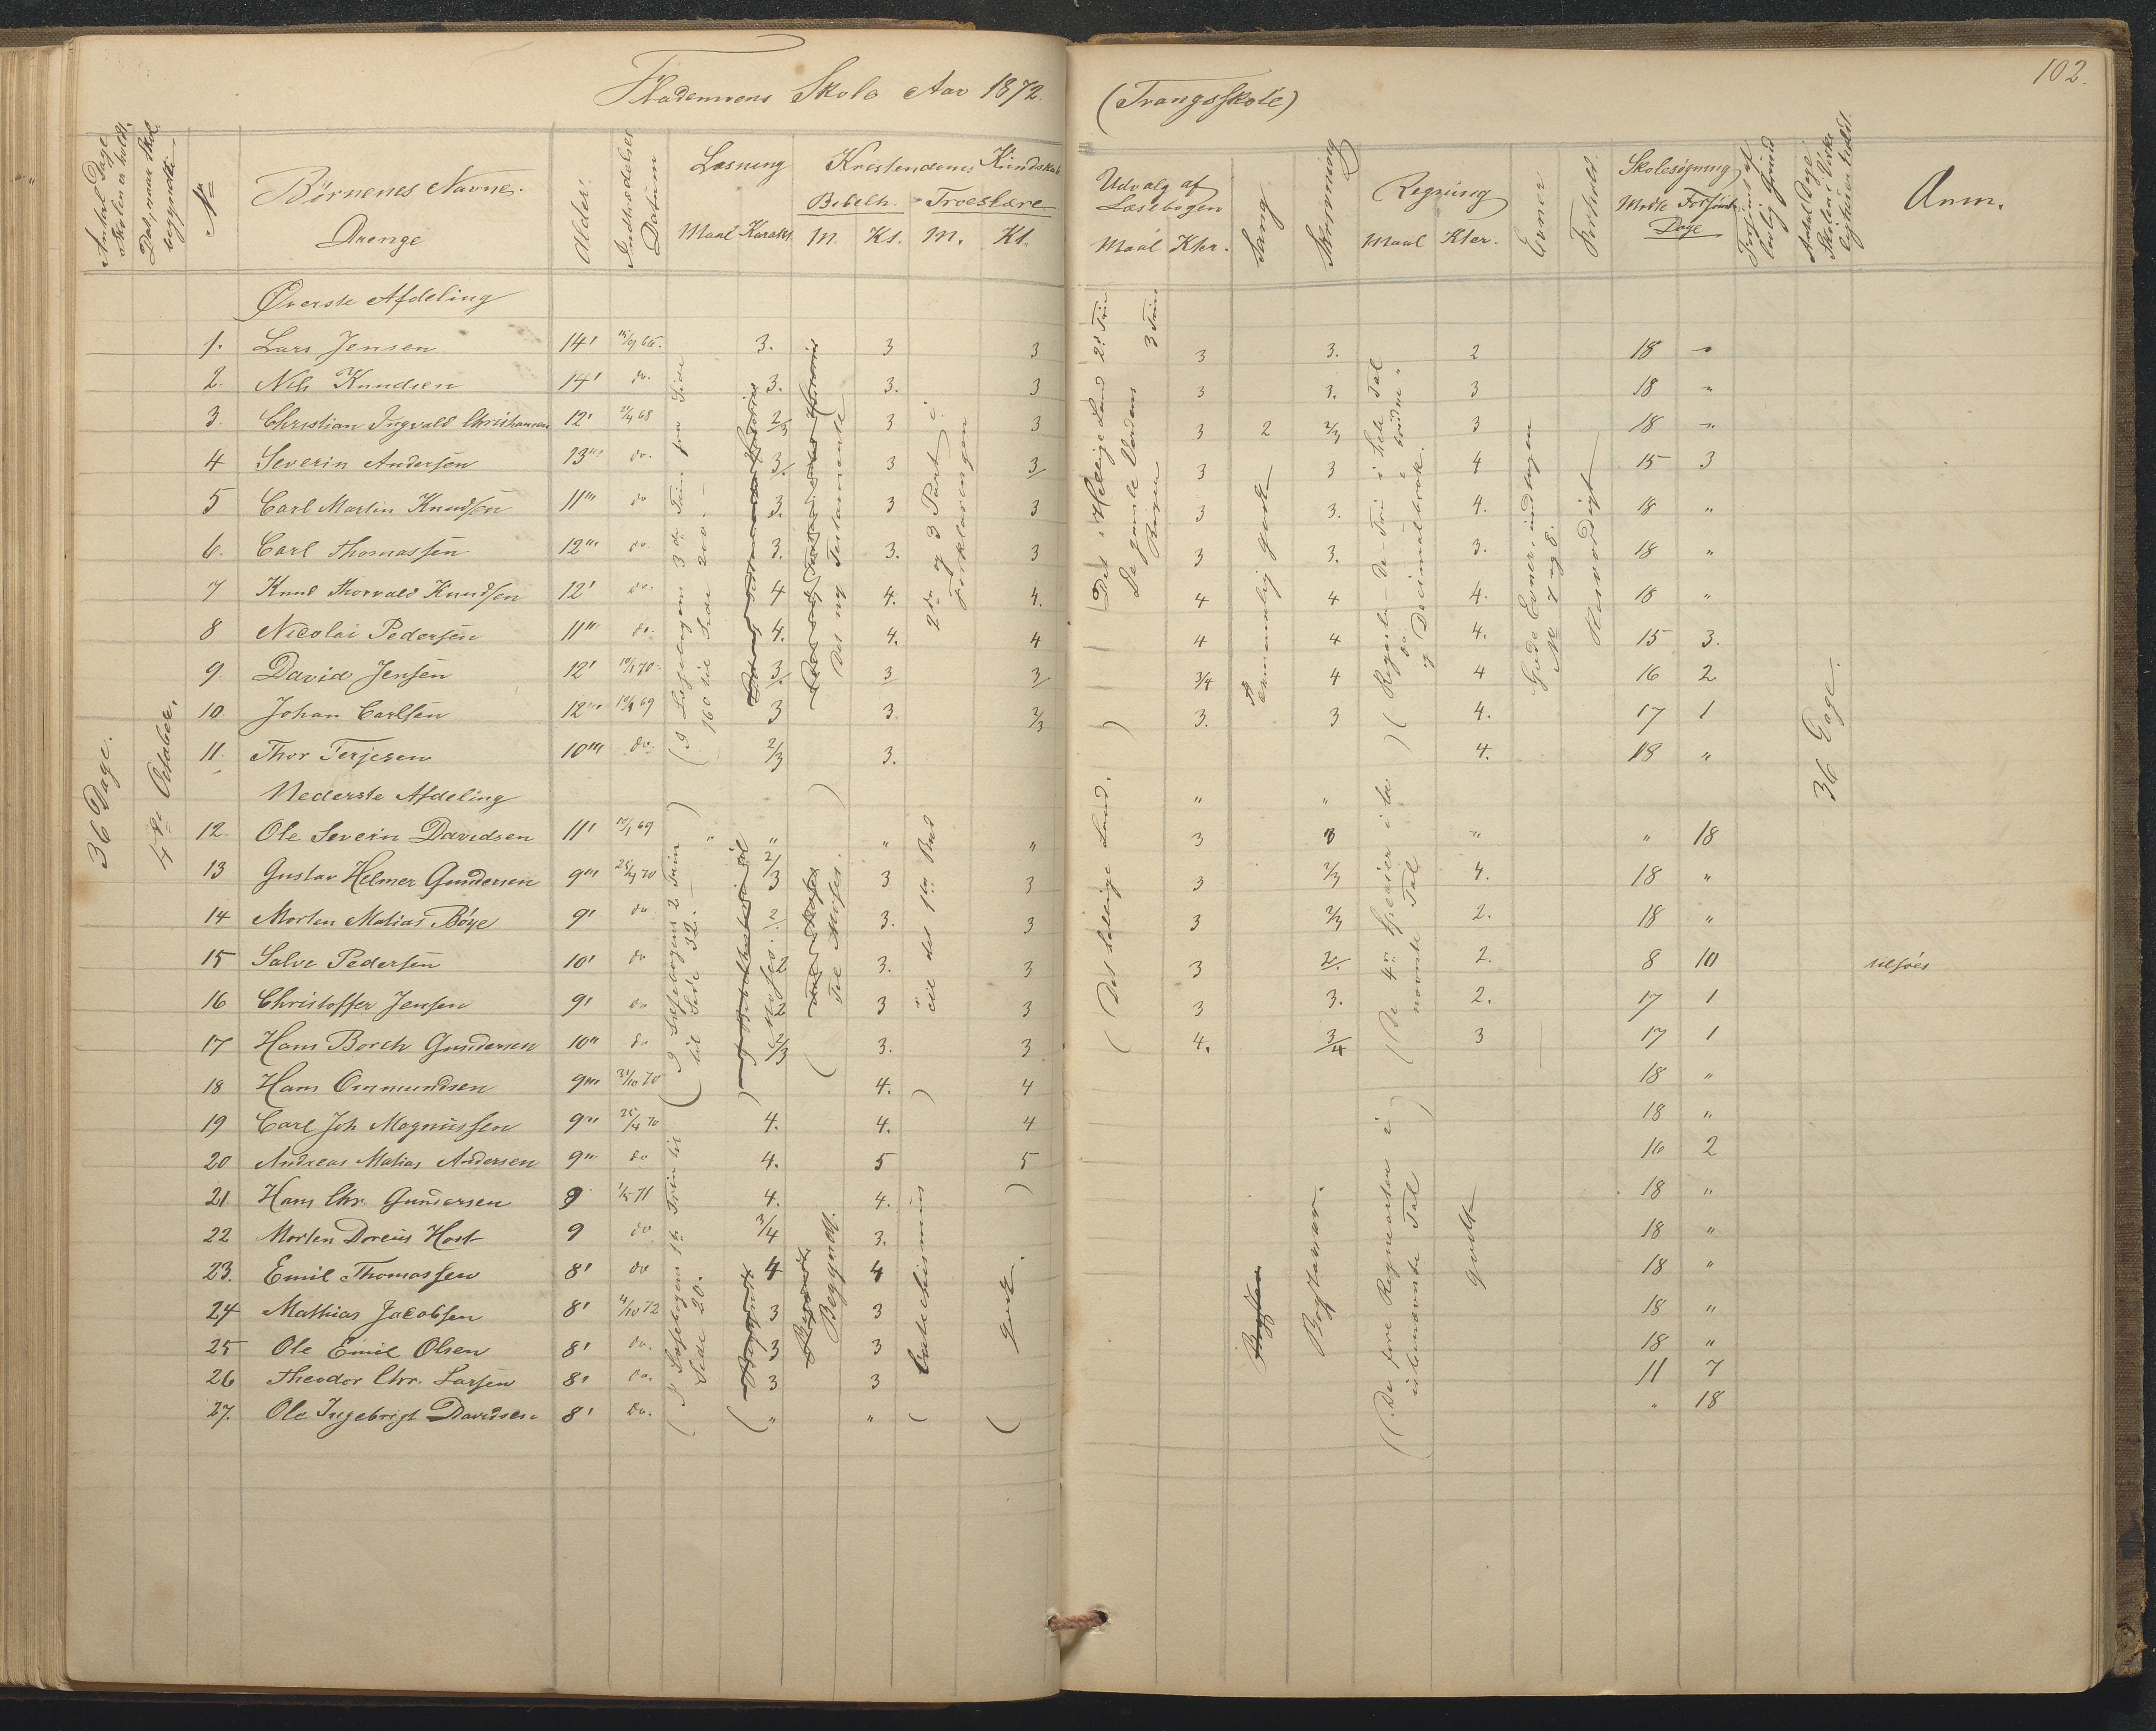 Skole Aar 1872.
(Trangsskole)
102.
Antal Dage Skolen er holdt.
Dat, naar Skol. begyndte
No
Børnenes Navne.
Drenge
Alder.
Indtrædelses Datum
Læsning
Maal Karakt.
Kristendoms Kundskab
Bibelh. Troeslære
M. Kt. M. Kt.
Udvalg af Læsebogen
Maal Kter.
Sang
Skrivning
Regning
Maal Kter.
Evner
Forhold.
Skolesøgning
Mødte Forsømte
Dage
Anm.
Øverste Afdeling
1. Lars Jensen 14' 3. 3 3 3 3. 2 18 "
2. Nils Knudsen 14' do. 3. 3. 3 3 3. 3 18 "
3. Christian Ingvald Christiansen 12' 2/3 3 3 3 2 2/3 3 18 "
4 Severin Andersen 13''' do. 3. 3 3 3 3 4 15 3
5 Carl Martin Knudsen 11''' do 3. 3 3 3 3. 4. 18 "
6. Carl Thomassen 12''' do. 3. 3. 3 3 3. 3. 18 "
7 Knud Thorvald Knudsen 12' do. 4 4. 4. 4 4 4. 18 "
8 Nicolai Pedersen 11''' do. 4. 4. 4 4 4 4. 15 3.
9. David Jensen 12' 3. 3 3 3/4 4 4 16 2
10. Johan Carlsen 12''' 3 3. 2/3 3. 3 4. 17 1
11. Thor Terjesen 10''' do. 2/3 3. 4. 18 "
Nederste Afdeling
12. Ole Severin Davidsen 11' " " " 3 3 " " 18
13 Gustav Helmer Gundersen 9''' 2/3 3 3 3 2/3 4. 18 "
14 Morten Matias Bøye 9' do 3. 3 3 2/3 2. 18 "
15 Salve Pedersen 10' do 3. 3 3 2. 2. 8 10 tilsjøes
16 Christoffer Jensen 9' do 3 3 3 3. 2. 17 1
17 Hans Borch Gundersen 10'' do 2/3 3. 3 4. 3/4 3 17 1
18 Hans Ommundsen 9''' 31/10 70 4. 4 18 "
19 Carl Joh Magnussen 9''' 25/4 70 4. 4. 4 18 "
20 Andreas Matias Andersen 9''' do 4. 5 5 16 2
21. Hans Chr. Gundersen 9 4. 4. 18 "
22 Morten Doreus Høst 9 do 3/4 3. 18 "
23. Emil Thomassen 8' do 4 4 18 "
24 Mathias Jacobsen 8' 4/10 72 3 3 18 "
25 Ole Emil Olsen 8' do. 3 3 18 "
26 Theodor Chr. Larsen 8' do. 3 3 11 7
27. Ole Ingebrigt Davidsen 8' do. " " " 18
36 Dage.
4de October.
(I Læsebogens 3die Trin fra Side 160 til Side 200.
Det ny Testamente
2den og 3 Part i Forklaringen
Det Hellige Land 2. Trin
De gamle Verdens Riger 3 Trin
Temmelig godt
og Decimalbrøk.
Gode Evner, undtagen No 7 og 8.
Rosværdigt
36 Dage.
(I Læsebogens 2 Trin til Side 32.
Til Moses.
til det 1ste Bud
(Det hellige Land.
(De 4re Specier i benævnte Tal
(I Læsebogens 1te Trin til Side 20.
Begyndt.
Catechismus
godt.
Bogstaver.
(De fire Regnearter i ubenævnte Tal
godt